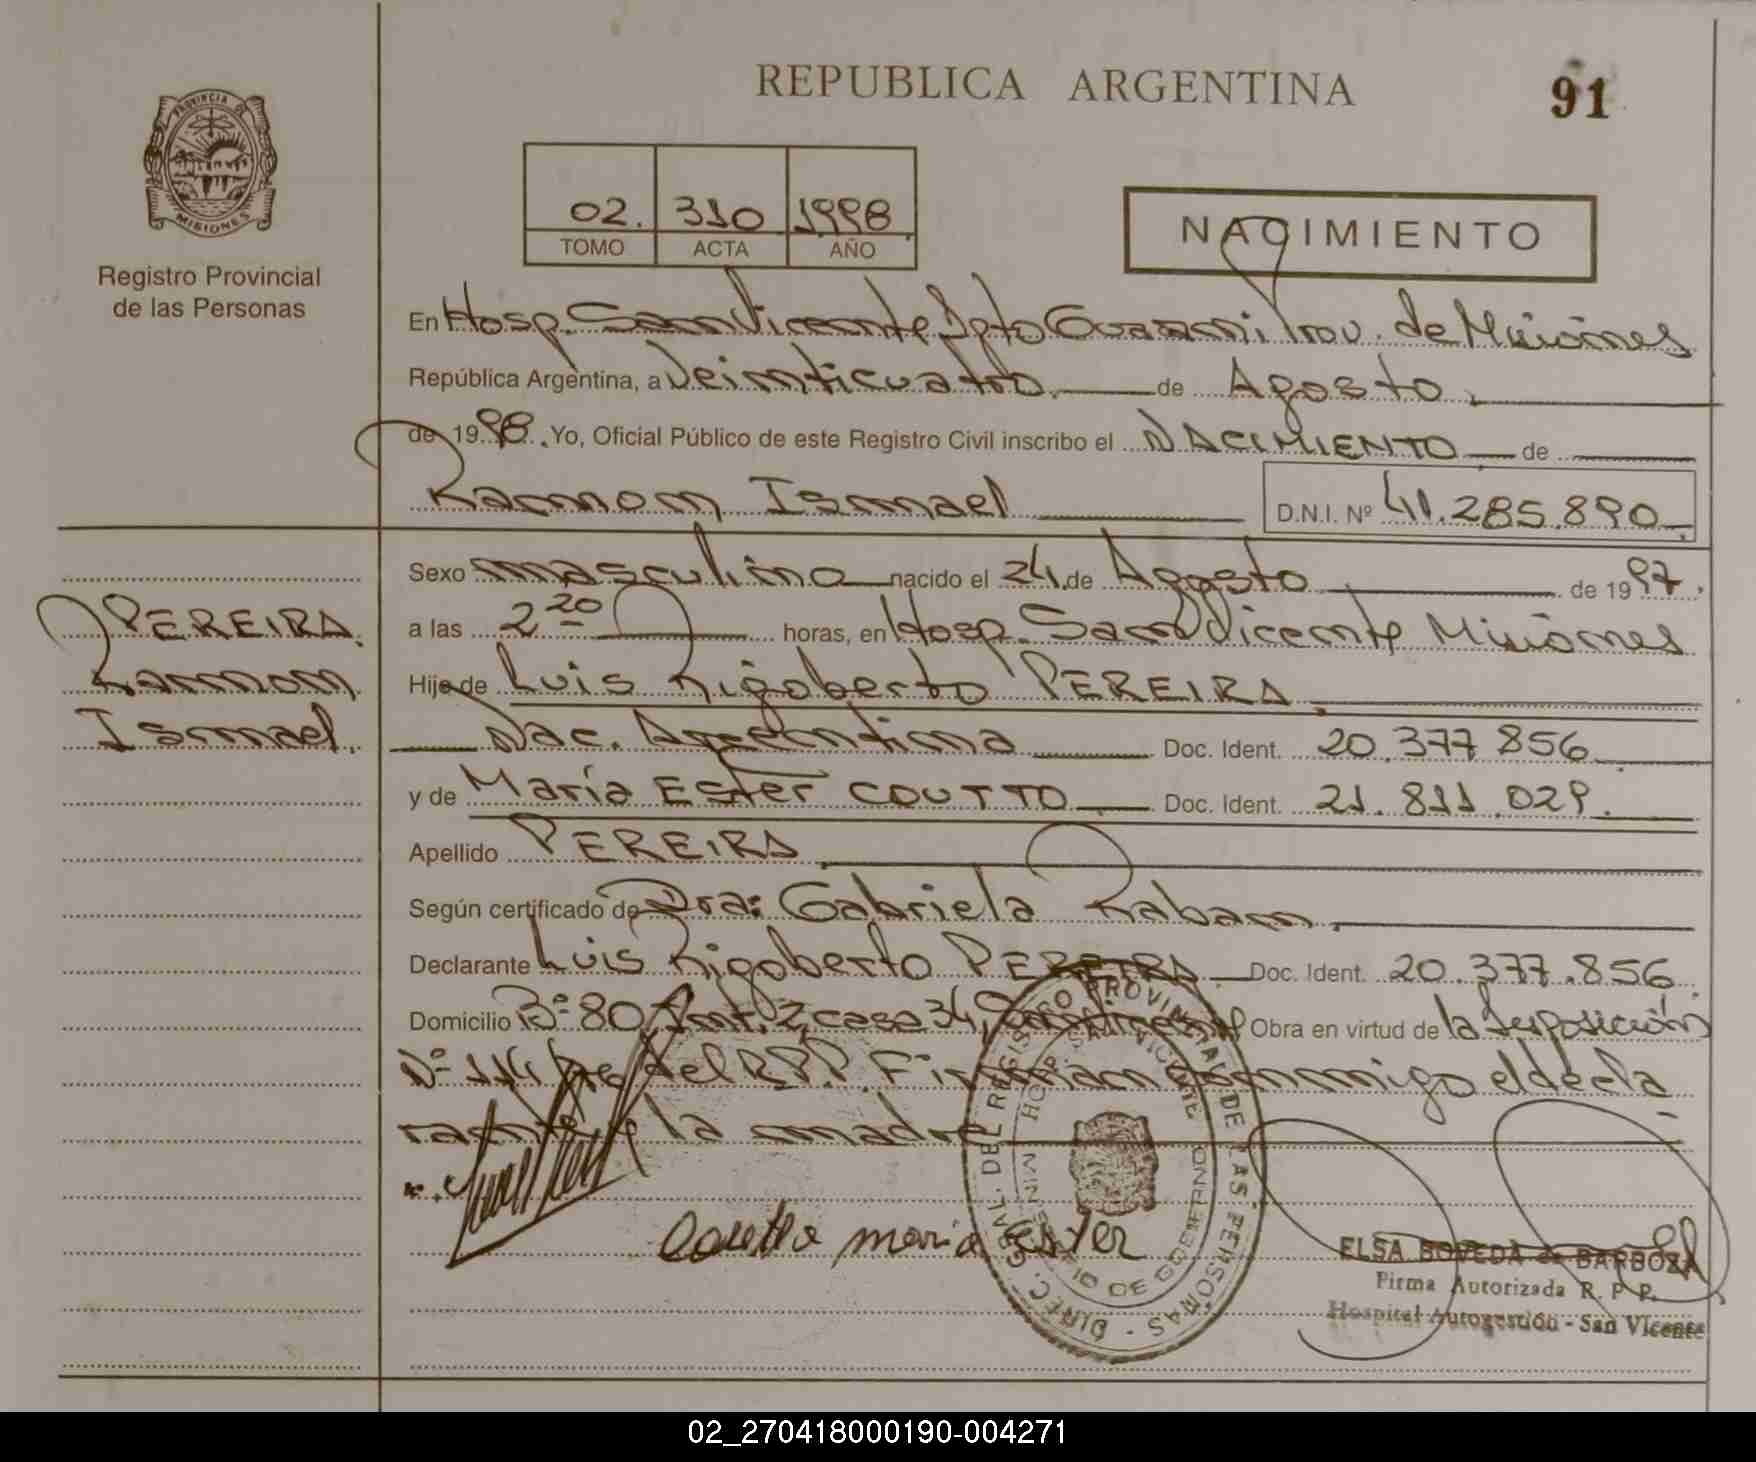 REPUBLICA ARGENTINA
91
PROVINCIA DE
MISIONES
Registro Provincial
de las Personas
02. 310 1998
TOMO ACTA AÑO
NACIMIENTO
En Hosp. San Vicente Dpto Guarani Prov. de Misiones
República Argentina, a Veinticuatro de Agosto
de 1998. Yo, Oficial Público de este Registro Civil inscribo el NACIMIENTO de
Ramon Ismael D.N.I. Nº 41.285.890
Sexo masculino nacido el 24 de Agosto de 1997.
PEREIRA
Ramon
Ismael.
a las 2 20 horas, en Hosp. San Vicente Misiones
Hijo de Luis Rigoberto PEREIRA
Nac. Argentina Doc. Ident. 20.377 856
y de María Ester COUTTO Doc. Ident. 21.811 029.
Apellido PEREIRA
Según certificado de Dra: Gabriela Raban
Declarante Luis Rigoberto PEREIRA Doc. Ident. 20.377.856
Domicilio Bº 80 casa 34, San Vicente Obra en virtud de la Disposición
Nº 114 del R.P.P. Firman conmigo el decla
rante la madre
Coutto maria Ester
DIREC. GRAL. DEL REGISTRO PROVINCIAL DE LAS PERSONAS
HOSP. SAN VICENTE
MINISTERIO DE GOBIERNO
ELSA BOVEDA de BARBOZA
Firma Autorizada R. P. P.
Hospital Autogestión - San Vicente
02_270418000190-004271